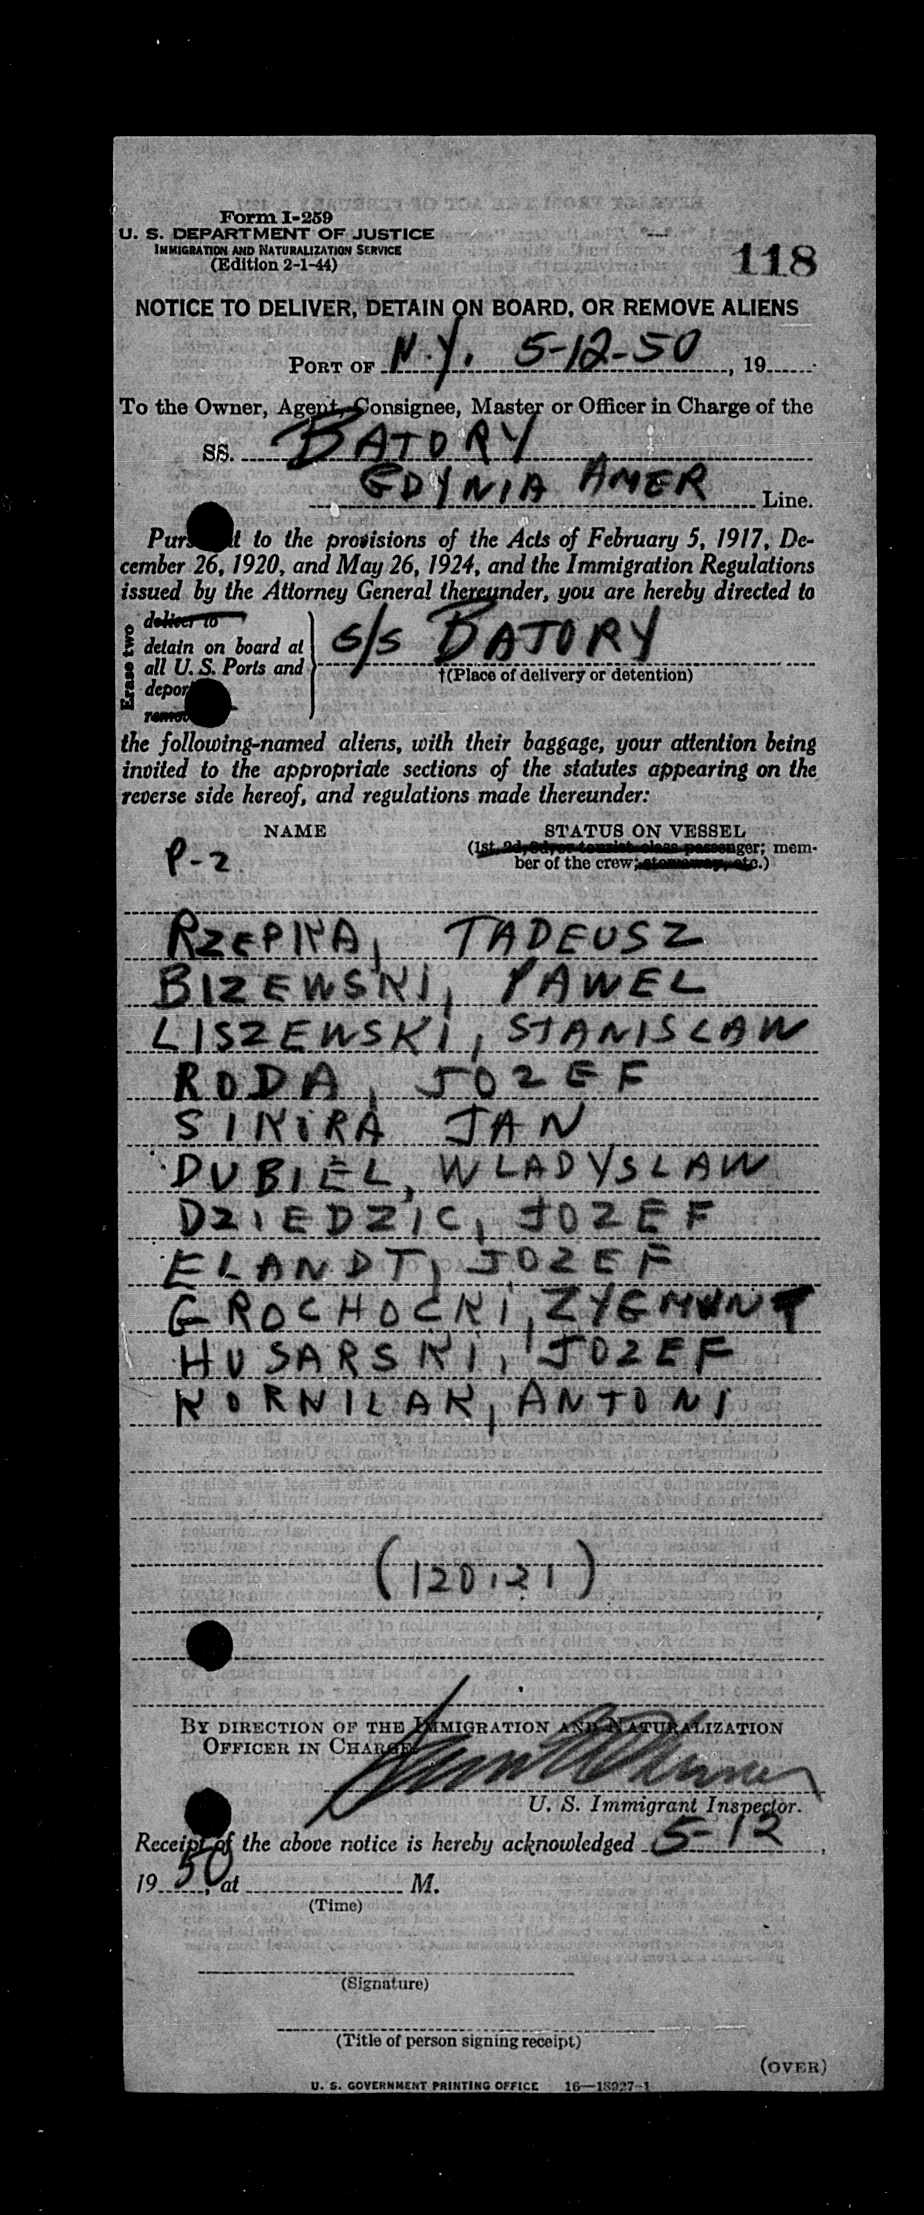 Form I-259
U. S. DEPARTMENT OF JUSTICE
IMMIGRATION AND NATURALIZATION SERVICE
(Edition 2-1-44)
118
NOTICE TO DELIVER, DETAIN ON BOARD, OR REMOVE ALIENS
PORT OF N.Y. 5-12-50, 19
To the Owner, Agent, Consignee, Master or Officer in Charge of the
SS. BATORY
GDYNIA AMER Line.
Pursuant to the provisions of the Acts of February 5, 1917, De-
cember 26, 1920, and May 26, 1924, and the Immigration Regulations
issued by the Attorney General thereunder, you are hereby directed to
Erase two
deliver to
detain on board at
all U. S. Ports and
deport
remove
S/S BATORY
†(Place of delivery or detention)
the following-named aliens, with their baggage, your attention being
invited to the appropriate sections of the statutes appearing on the
reverse side hereof, and regulations made thereunder:
NAME STATUS ON VESSEL
(1st, 2d, 3d, or tourist class passenger; mem-
ber of the crew; stowaway, etc.)
P-2
RZEPKA, TADEUSZ
BIZEWSKI, PAWEL
LISZEWSKI, STANISLAW
RODA, JOZEF
SIKIRA JAN
DUBIEL, WLADYSLAW
DZIEDZIC, JOZEF
ELANDT, JOZEF
GROCHOCKI, ZYGMUNT
HUSARSKI, JOZEF
KORNILAK, ANTONI
(120,121)
BY DIRECTION OF THE IMMIGRATION AND NATURALIZATION
OFFICER IN CHARGE
U. S. Immigrant Inspector.
Receipt of the above notice is hereby acknowledged 5-12,
1950, at M.
(Time)
(Signature)
(Title of person signing receipt)
(OVER)
U. S. GOVERNMENT PRINTING OFFICE 16—18927-1